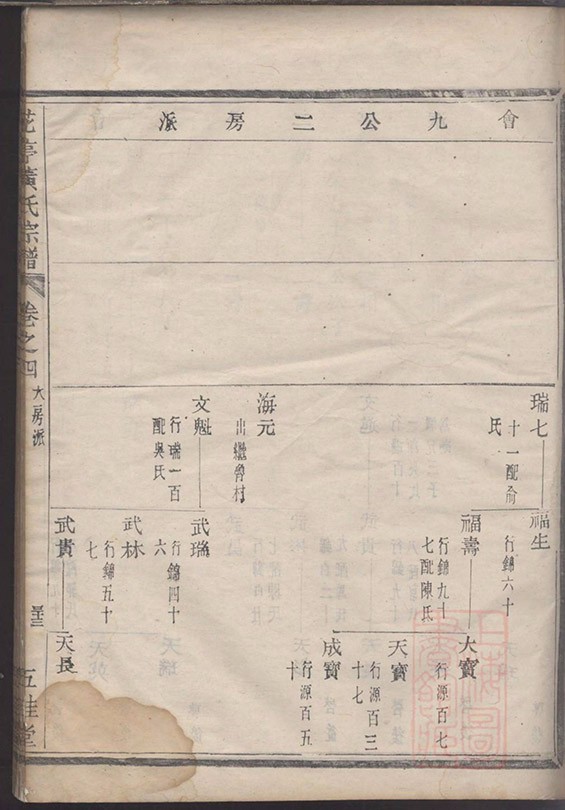 會九公二房派
瑞七
十一配俞
氏
海元
出繼嶺村
文魁
行瑞一百
配吳氏
福生
行錦六十
福壽
行錦九十
七配陳氏
武瑞
行錦四十
六
武林
行錦五十
七
武貴
大寶
行源百七
天寶
行源百三
十七
成寶
行源百五
十
天長
花亭黃氏宗譜
卷之四
大房派
五桂堂